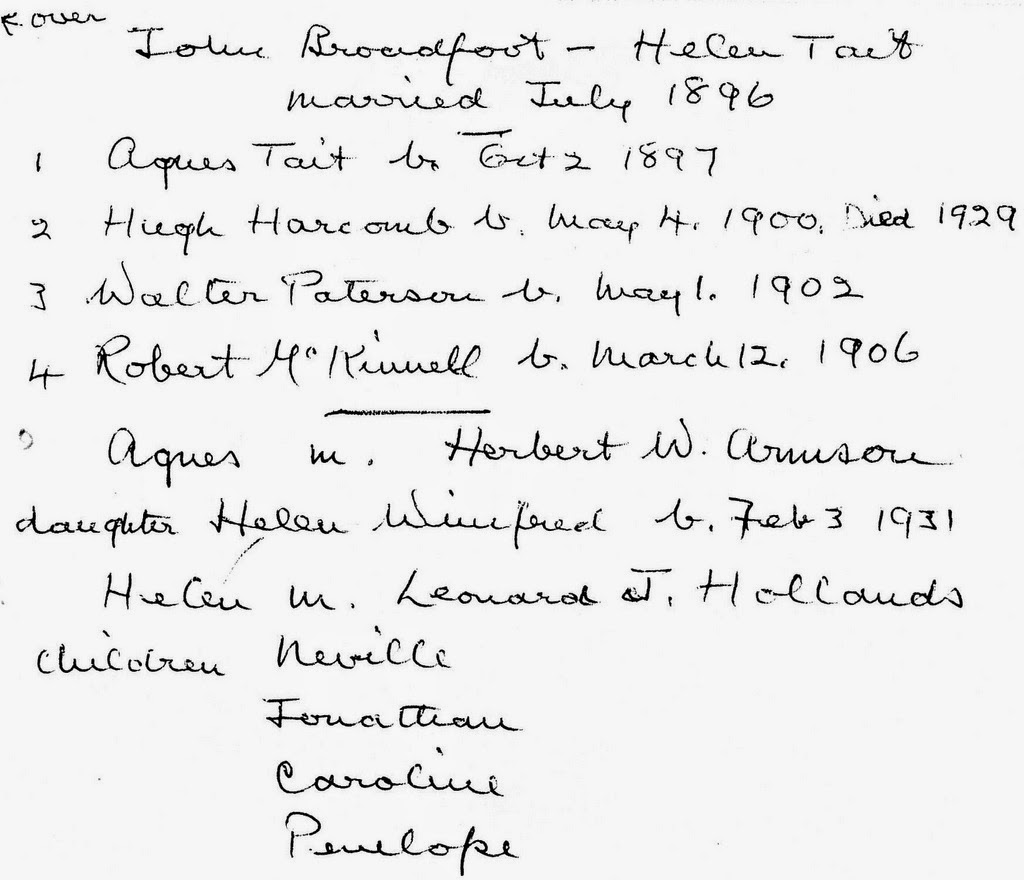 over
John Broadfoot – Helen Tait
married July 1896
1 Agnes Tait b. Oct 2 1897
2 Hugh Harcomb b. May 4. 1900. Died 1929
3 Walter Paterson b. May 1. 1902
4 Robert McKinnell b. March 12. 1906
Agnes m. Herbert W. Armson
daughter Helen Winifred b. Feb 3 1931
Helen m. Leonard J. Hollands
children Neville
Jonathan
Caroline
Penelope